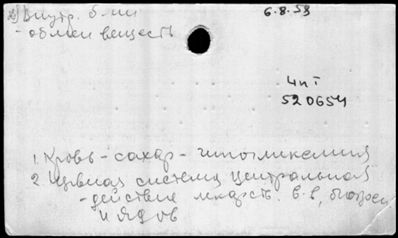 Внутр. б-ни
6.8.59
- обмен веществ
4пI
520654
1. Кровь - сахар - гипогликемия
2. Нервная система центральная
- действие лекарств. в-в,
и ядов